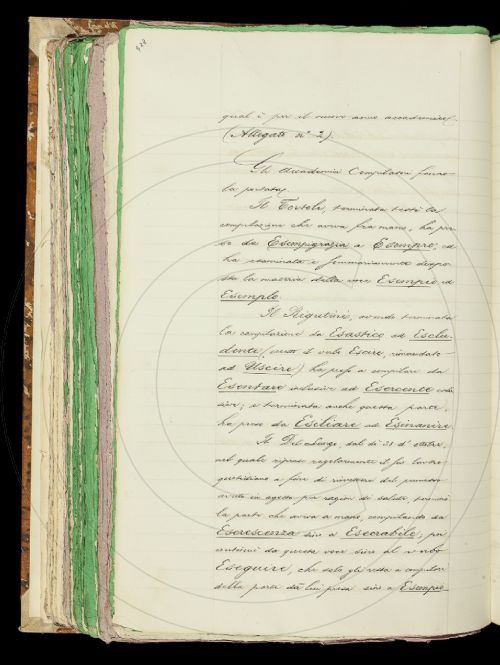 428
qual è per il nuovo anno accademico
(Allegato n° 2).
Gli Accademici Compilatori fanno
la portata.
Il Tortoli, terminata testè la
compilazione che aveva fra mano, ha pre
so da Esempigrazia a Esempro, ed
ha esaminata e sommariamente dispo
sta la materia della voce Esempio ed
Esemplo.
Il Rigutini, avendo terminata
la compilazione da Esastico ad Esclu-
dente (eccetto il verbo Escire, rimandato
ad Uscire) ha preso a compilare da
Esentare inclusive ad Esercente inclu
sive; e terminata anche questa parte,
ha preso da Esiliare ad Esinanire.
Il Del Lungo, dal dì 31 d'ottobre,
nel quale riprese regolarmente il suo lavoro
quotidiano a fine di rimettersi del permesso
avuto in agosto per ragion di salute, terminò
la parte che aveva a mano, compilando da
Escrescenza sino a Esecrabile; poi
continuò da questa voce sino al verbo
Eseguire, che solo gli resta a compilare
della parte da lui presa sino a Esempio-